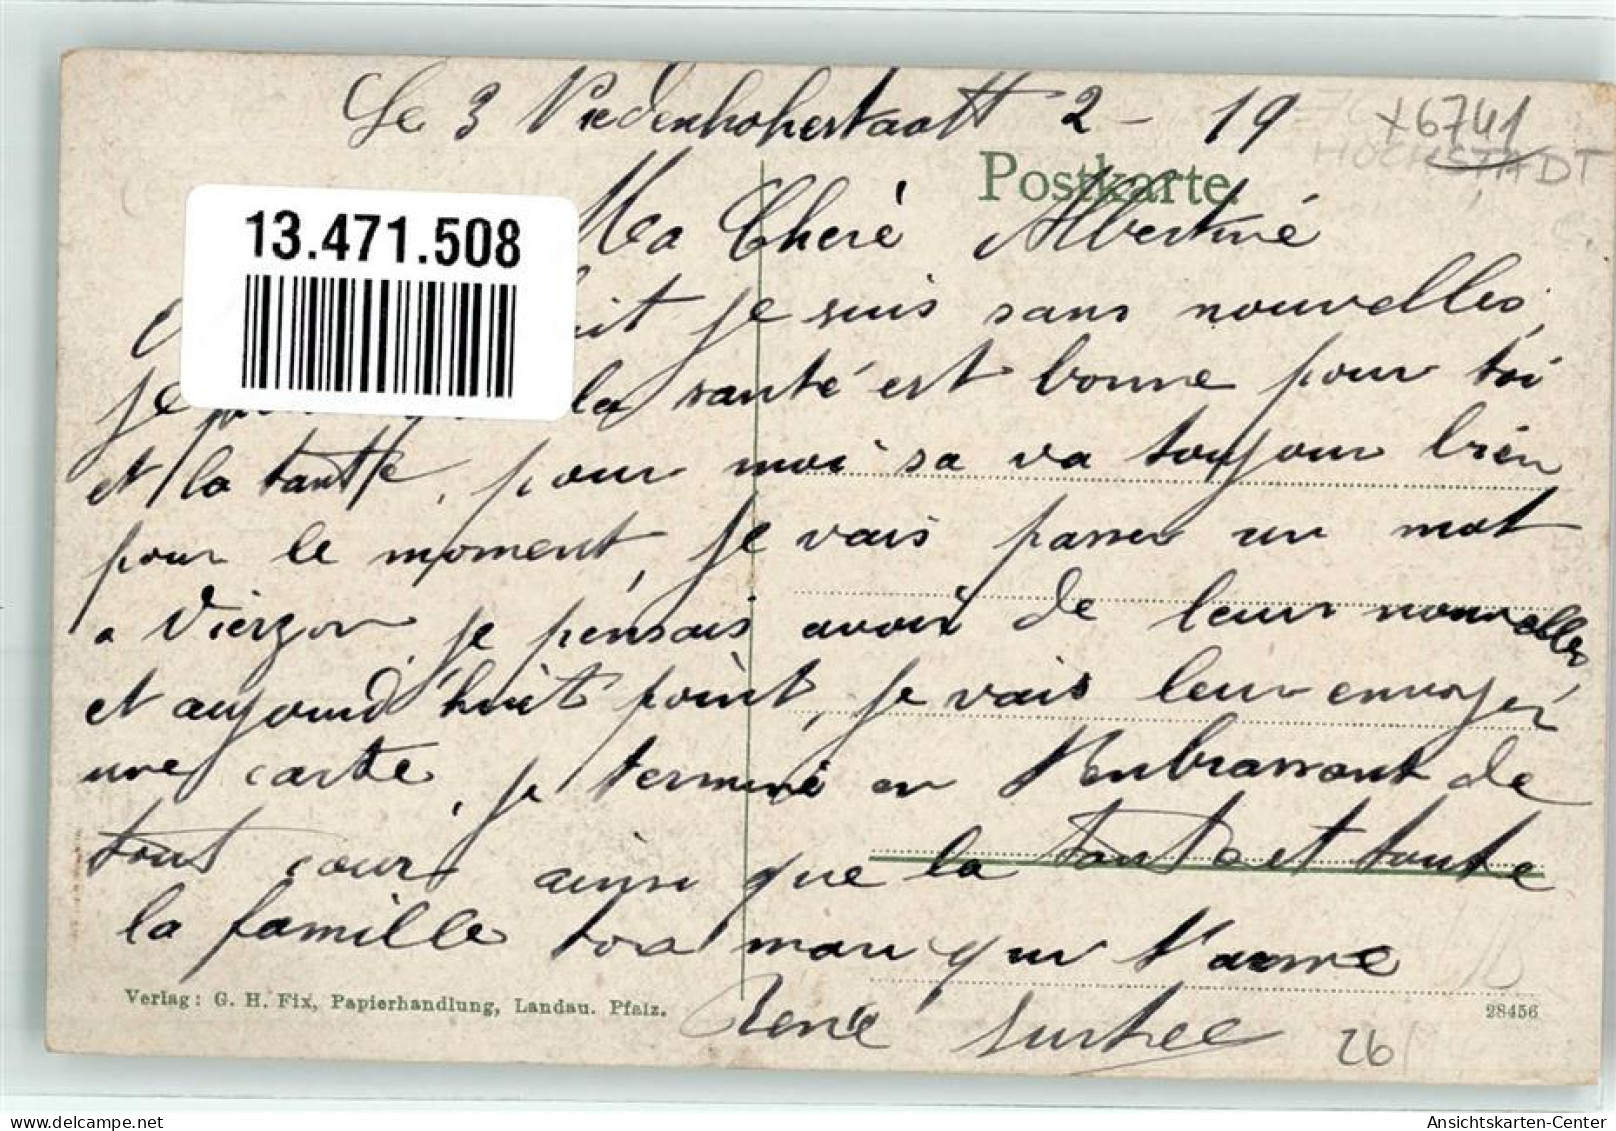 Le 3 Niedenhohestaatt 2 - 19
x6741
HOCHSTADT
Postkarte.
13.471.508
Ma Cheré Albertiné
je suis sans nouvelles,
je la santé est bonne pour toi
et la tantte, pour moi sa va toujour bien
pour le moment, je vais passer un mot
a Vierzon, je pensais avoir de leur nouvelles
et aujourd'huit point, je vais leur envoyér
une carte, je terminé en t'enbrassant de
tout cour ainsi que la tante et toute
la famille ton mari qui t'aime
René
Verlag: G. H. Fix, Papierhandlung, Landau. Pfalz.
28456
26
Ansichtskarten-Center